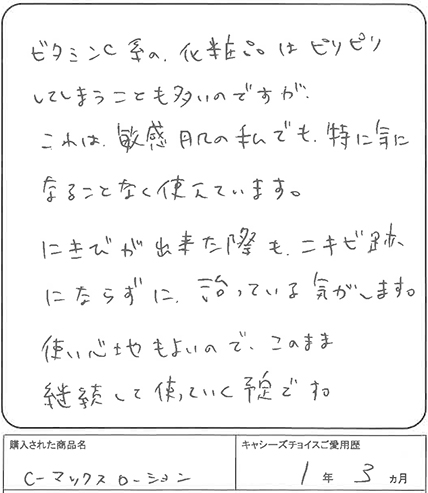 ビタミンC系の、化粧品はピリピリ
してしまうことも多いのですが、
これは、敏感肌の私でも、特に気に
なることなく使えています。
にきびが出来た際も、ニキビ跡、
にならずに、治っている気がします。
使い心地もよいので、このまま
継続して使っていく予定です。
購入された商品名
キャシーズチョイスご愛用歴
C-マックスローション
1年3ヵ月